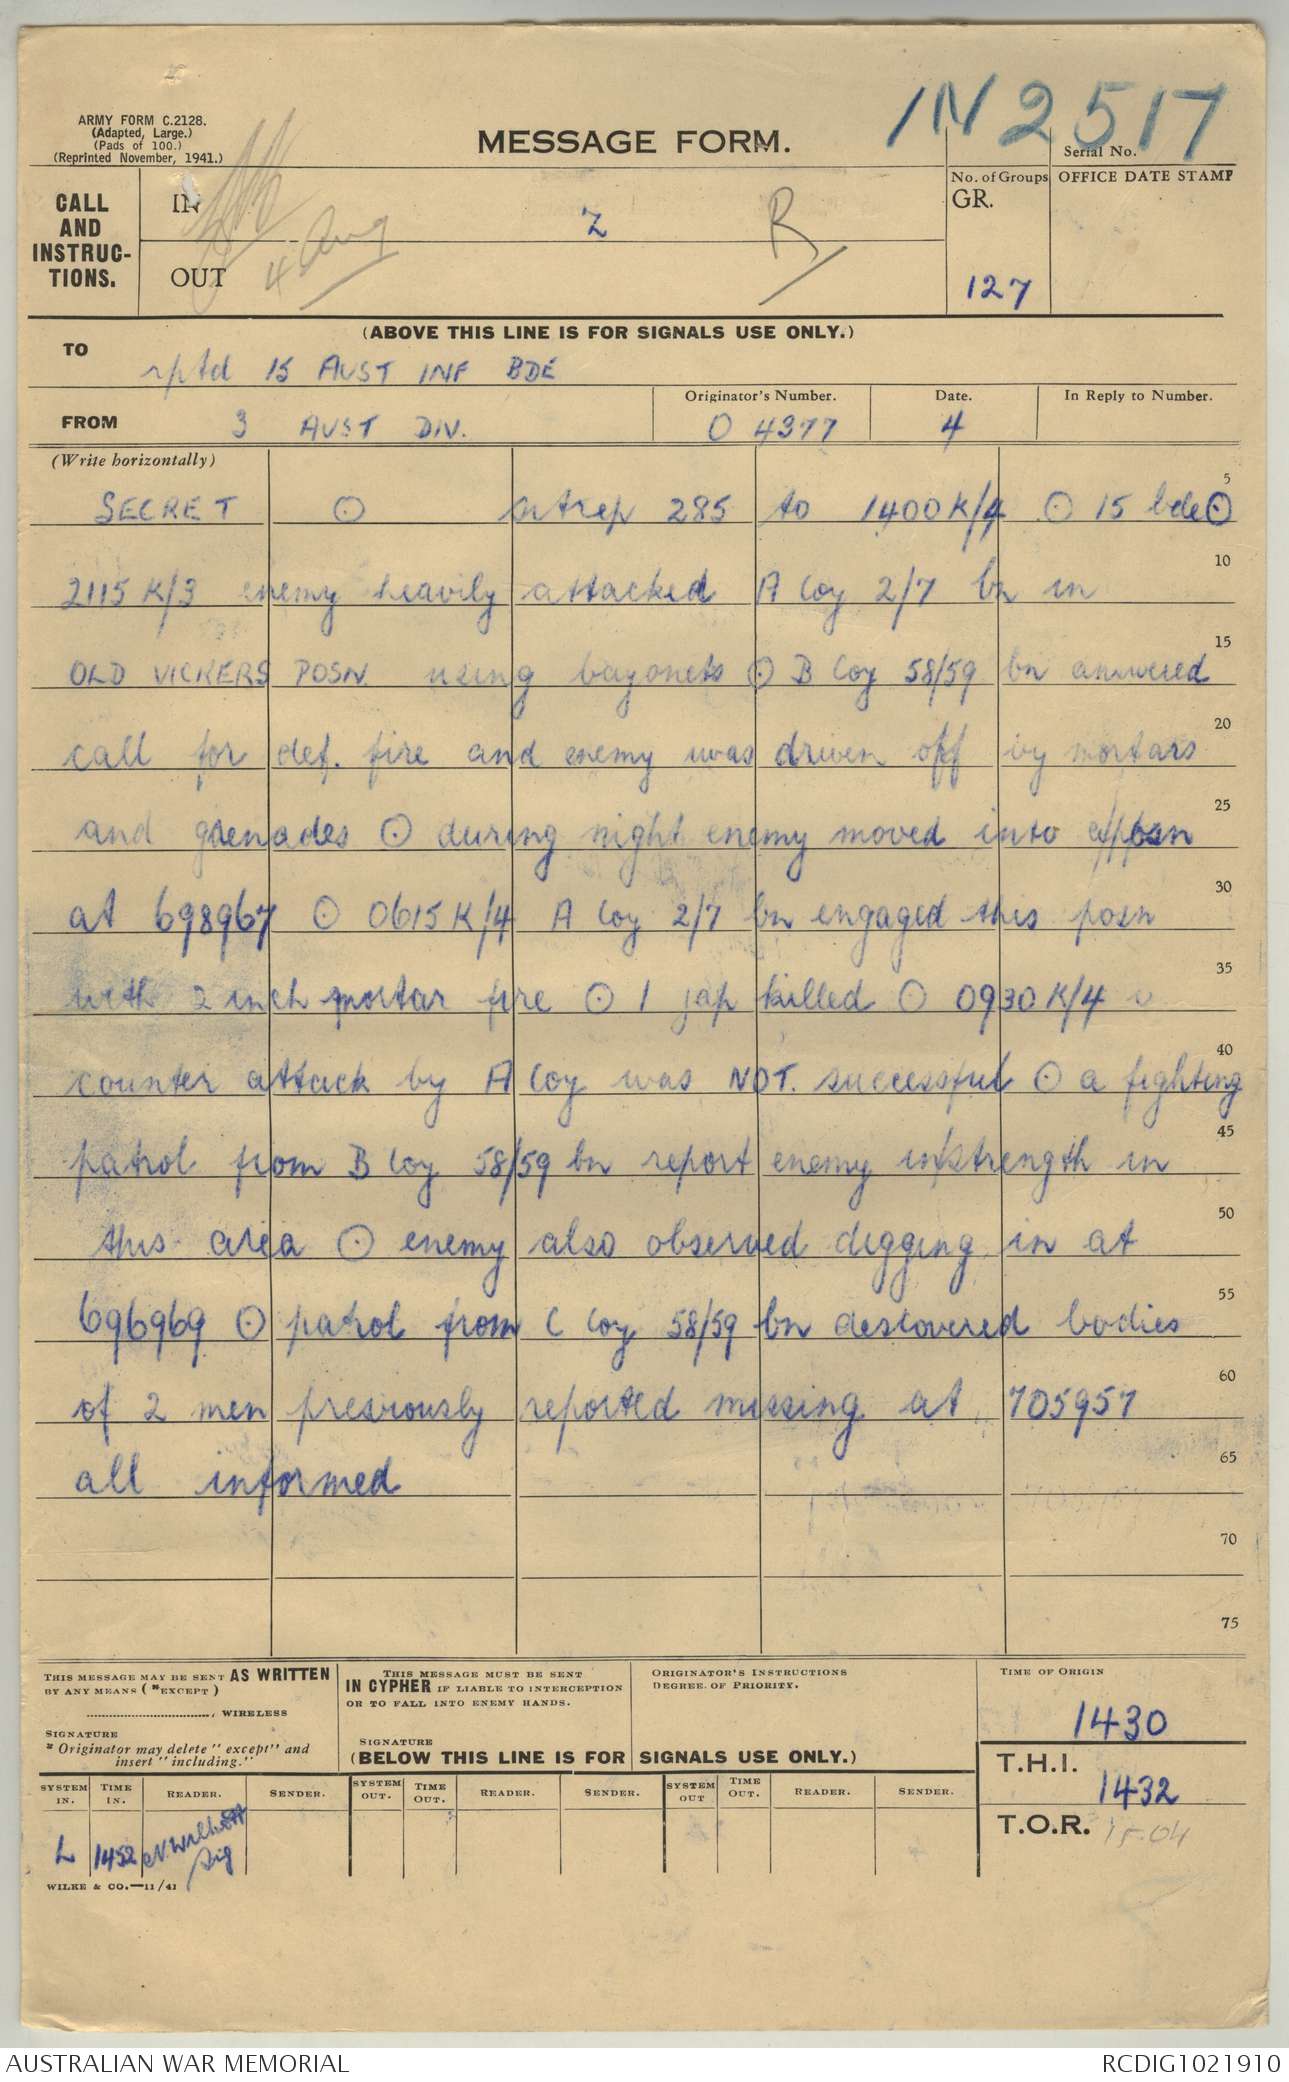 IN 2517
ARMY FORM C.2128.
(Adapted, Large.)
(Pads of 100.)
(Reprinted November, 1941.)
MESSAGE FORM.
Serial No.
CALL
AND
INSTRUC-
TIONS.
IN
OUT
4 Aug
Z
R
No. of Groups
GR.
127
OFFICE DATE STAMP
(ABOVE THIS LINE IS FOR SIGNALS USE ONLY.)
TO
rptd 15 AUST INF BDE
FROM
3 AUST DIV.
Originator's Number.
O 4377
Date.
4
In Reply to Number.
(Write horizontally)
SECRET ⊙ sitrep 285 to 1400K/4 ⊙ 15 bde ⊙ 5
2115 K/3 enemy heavily attacked A Coy 2/7 bn in 10
OLD VICKERS POSN. using bayonets ⊙ B Coy 58/59 bn answered 15
call for def. fire and enemy was driven off by mortars 20
and grenades ⊙ during night enemy moved into 25
at 698967 ⊙ 0615K/4 A Coy 2/7 bn engaged this posn 30
with 2 inch mortar fire ⊙ 1 jap killed ⊙ 0930K/4 35
counter attack by A Coy was NOT. successful ⊙ a fighting 40
patrol from B Coy 58/59 bn report enemy in strength in 45
this area ⊙ enemy also observed digging in at 50
696969 ⊙ patrol from C Coy 58/59 bn descovered bodies 55
of 2 men presviously reported missing at 705957 60
all informed 65
70
75
THIS MESSAGE MAY BE SENT AS WRITTEN
BY ANY MEANS (*EXCEPT)
, WIRELESS
SIGNATURE
* Originator may delete "except" and
insert "including."
THIS MESSAGE MUST BE SENT
IN CYPHER IF LIABLE TO INTERCEPTION
OR TO FALL INTO ENEMY HANDS.
SIGNATURE
ORIGINATOR'S INSTRUCTIONS
DEGREE OF PRIORITY.
TIME OF ORIGIN
1430
(BELOW THIS LINE IS FOR SIGNALS USE ONLY.)
T.H.I.
1432
T.O.R. 15.04
SYSTEM IN. TIME IN. READER. SENDER. SYSTEM OUT. TIME OUT. READER. SENDER. SYSTEM OUT TIME OUT. READER. SENDER.
L 1452 Sig
WILKE & CO.—11/41
AUSTRALIAN WAR MEMORIAL
RCDIG1021910